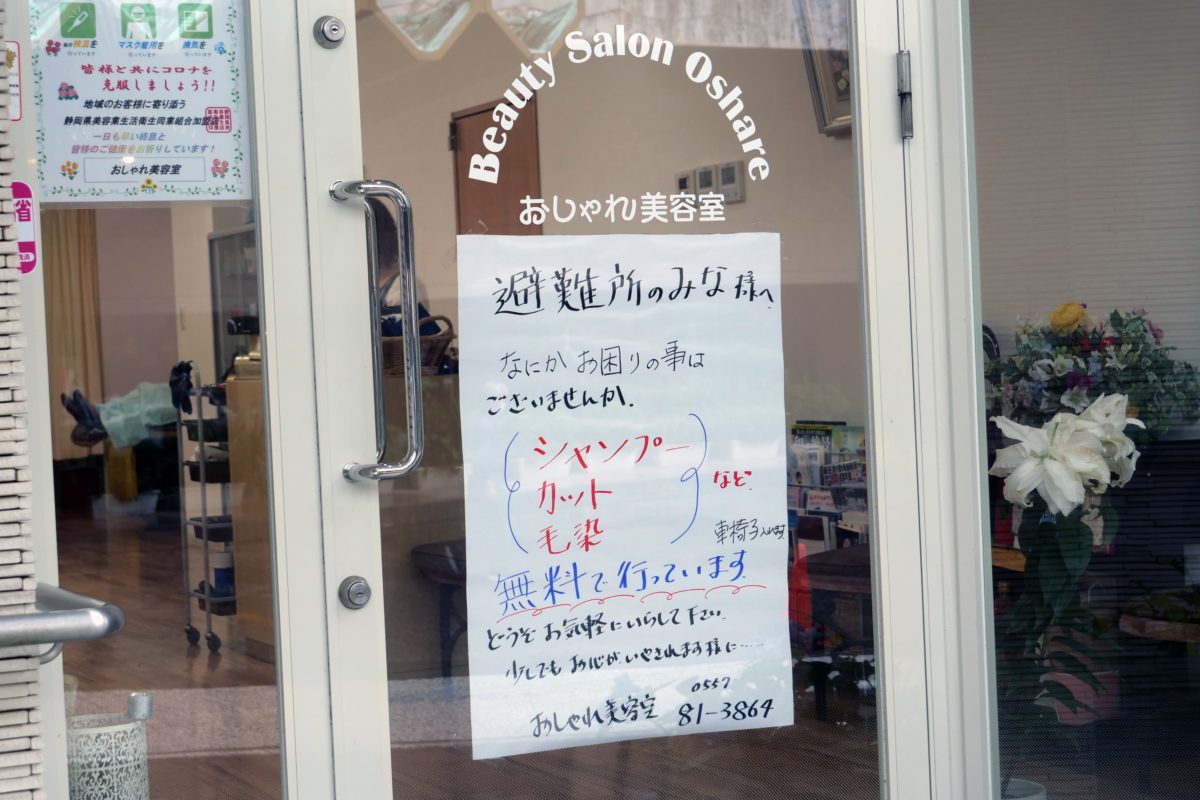 検温を
行っています
マスク着用を
行っています
換気を
行っています
皆様と共にコロナを
克服しましょう!!
地域のお客様に寄り添う
静岡県美容業生活衛生同業組合加盟店
一日も早い終息と
皆様のご健康をお祈りしています!
おしゃれ美容室
省
Beauty Salon Oshare
おしゃれ美容室
避難所のみな様へ
なにか お困りの事は
ございませんか.
シャンプー
カット
毛染
など
車椅子入れます
無料で行っています
どうぞお気軽にいらして下さい.
少しでもお心がいやされます様に……
おしゃれ美容室 0557
81-3864